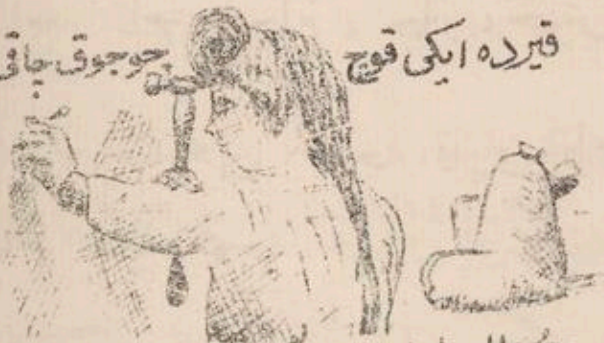 قیرده ایکی قوچ
چوجوق چاقی